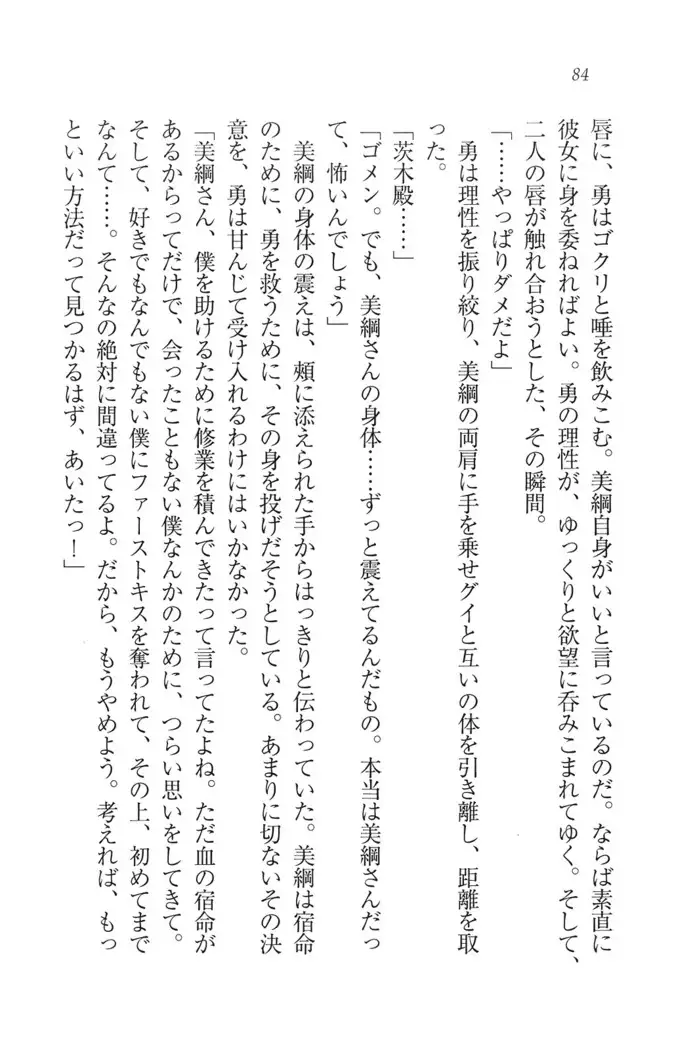 84
唇に、勇はゴクリと唾を飲みこむ。美綱自身がいいと言っているのだ。ならば素直に
彼女に身を委ねればよい。勇の理性が、ゆっくりと欲望に呑みこまれてゆく。そして、
二人の唇が触れ合おうとした、その瞬間。
「……やっぱりダメだよ」
勇は理性を振り絞り、美綱の両肩に手を乗せグイと互いの体を引き離し、距離を取
った。
「茨木殿……」
「ゴメン。でも、美綱さんの身体……ずっと震えてるんだもの。本当は美綱さんだっ
て、怖いんでしょう」
美綱の身体の震えは、頰に添えられた手からはっきりと伝わっていた。美綱は宿命
のために、勇を救うために、その身を投げだそうとしている。あまりに切ないその決
意を、勇は甘んじて受け入れるわけにはいかなかった。
「美綱さん、僕を助けるために修業を積んできたって言ってたよね。ただ血の宿命が
あるからってだけで、会ったこともない僕なんかのために、つらい思いをしてきて。
そして、好きでもなんでもない僕にファーストキスを奪われて、その上、初めてまで
なんて……。そんなの絶対に間違ってるよ。だから、もうやめよう。考えれば、もっ
といい方法だって見つかるはず、あいたっ！」